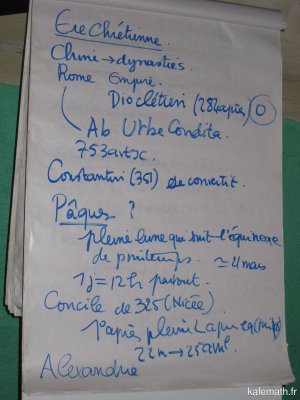 Ere Chrétienne.
Chine → dynasties
Rome Empire.
Dioclétien (284 après) 0
Ab Urbe Condita.
753 av JC
Constantin (351) se convertit.
Pâques ?
pleine lune qui suit l'équinoxe
de printemps. ≃ 4 mars
1j = 12h partout.
Concile de 325 (Nicée)
1er après pleine L après eq
22 m → 25 avril
Alexandrie
kafemath.fr